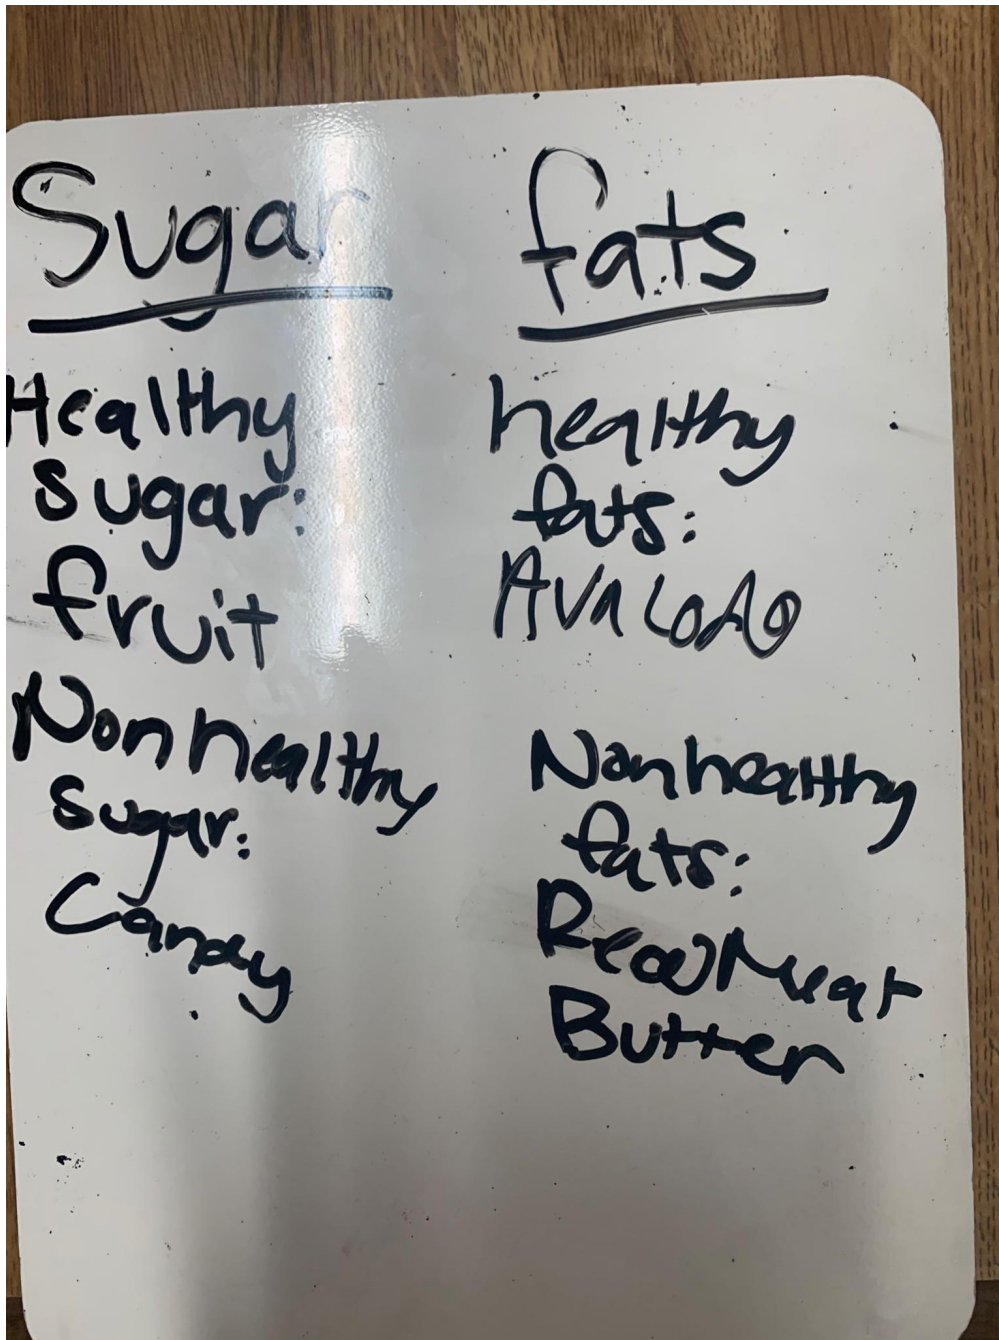 Sugar
Healthy
sugar:
fruit
Nonhealthy
sugar:
Candy
fats
healthy
fats:
Avacado
Nonhealthy
fats:
Read Meat
Butter